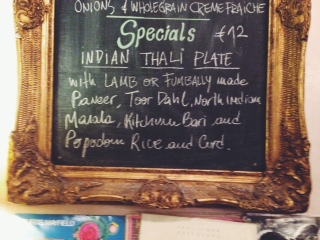 ONIONS & WHOLEGRAIN CREME FRAICHE
Specials €12
INDIAN THALI PLATE
with LAMB OR FUMBALLY made
Paneer, Toor Dahl, North Indian
Masala, Kitchuru Bari and
Popodom Rice and Curd.